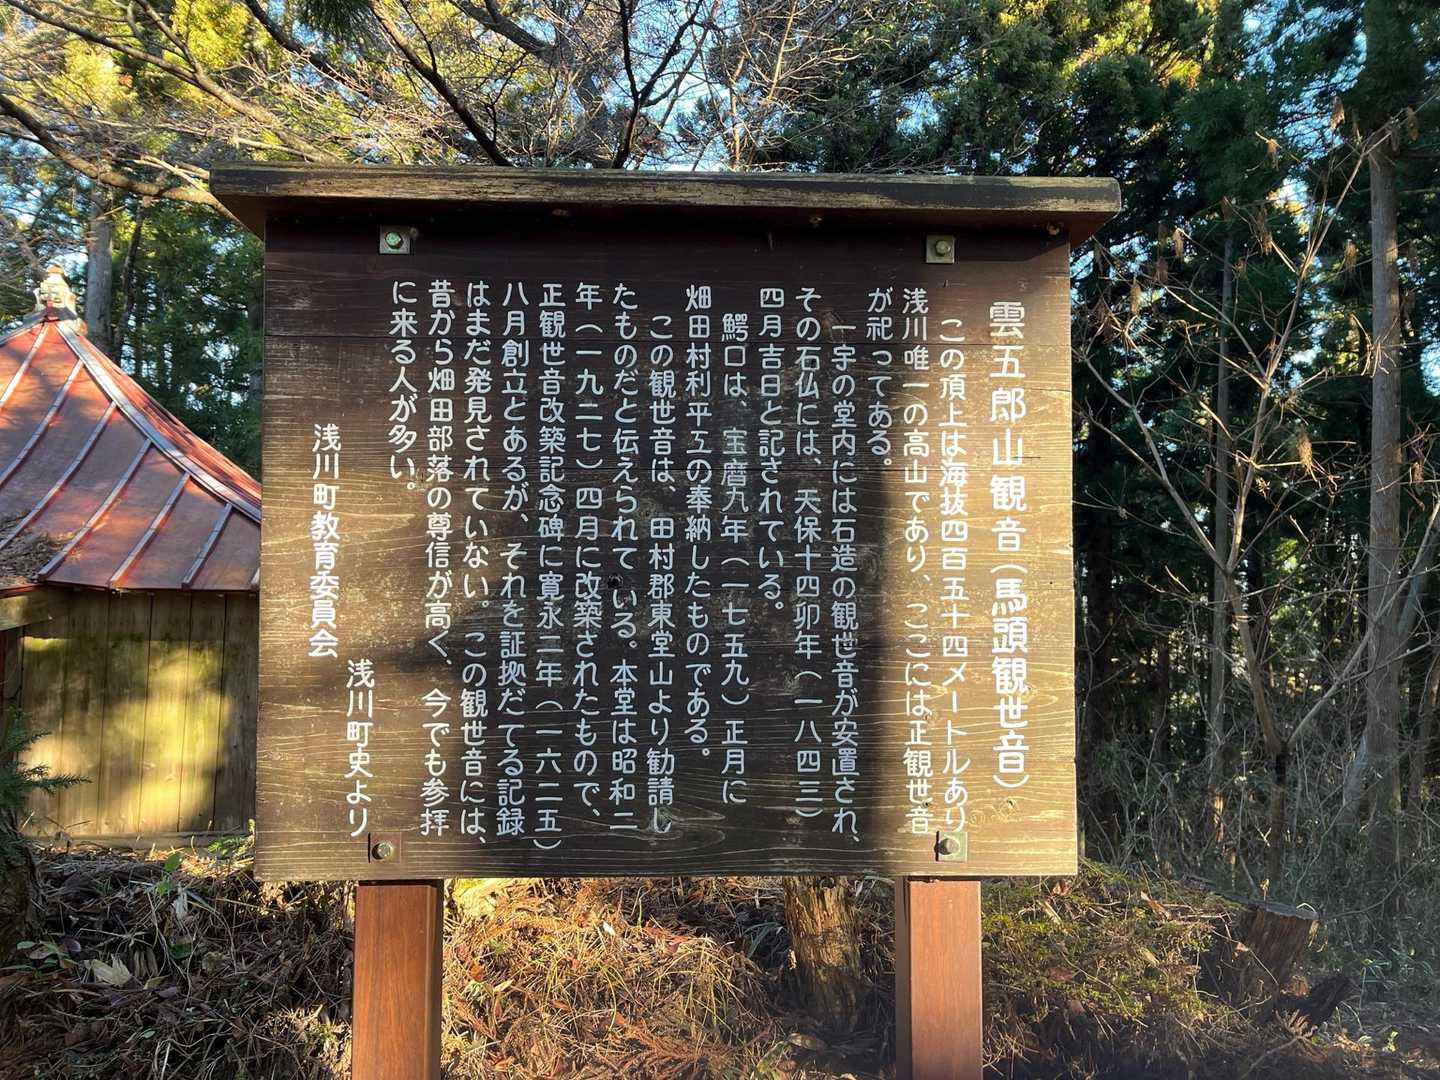 雲五郎山観音（馬頭観世音）
この頂上は海抜四百五十四メートルあり
浅川唯一の高山であり、ここには正観世音
が祀ってある。
一宇の堂内には石造の観世音が安置され、
その石仏には、天保十四卯年（一八四三）
四月吉日と記されている。
鰐口は、宝暦九年（一七五九）正月に
畑田村利平エの奉納したものである。
この観世音は、田村郡東堂山より勧請し
たものだと伝えられている。本堂は昭和二
年（一九二七）四月に改築されたもので、
正観世音改築記念碑に寛永二年（一六二五）
八月創立とあるが、それを証拠だてる記録
はまだ発見されていない。この観世音には、
昔から畑田部落の尊信が高く、今でも参拝
に来る人が多い。
浅川町史より
浅川町教育委員会